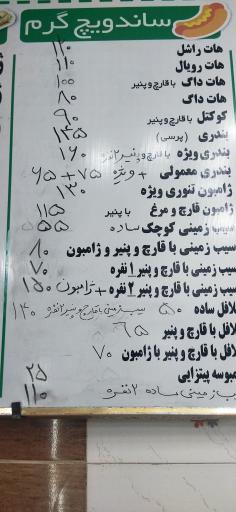 ساندویچ گرم
هات راشل ۱۱۰
هات رویال ۱۱۰
هات داگ با قارچ و پنیر ۱۰۰
هات داگ ۸۰
کوکتل با قارچ و پنیر ۹۰
بندری (پرسی) ۱۴۵
بندری ویژه با قارچ و پنیر ۲ نفره ۱۶۰
بندری معمولی + ویژه ۷۵ + ۶۵
ژامبون تنوری ویژه ۱۳۰
ژامبون قارچ و مرغ با پنیر ۱۱۵
سیب زمینی کوچک ساده ۵۵
سیب زمینی با قارچ و پنیر و ژامبون ۸۰
سیب زمینی با قارچ و پنیر ۱ نفره ۷۰
سیب زمینی با قارچ و پنیر ۲ نفره + ژامبون ۱۵۰
لافل ساده ۵۰ سیب زمینی با قارچ و پنیر ۲ نفره ۱۴۰
لافل با قارچ و پنیر ۶۵
لافل با قارچ و پنیر با ژامبون ۷۰
مبوسه پیتزایی ۲۵
یب زمینی ساده ۲ نفره ۱۱۰